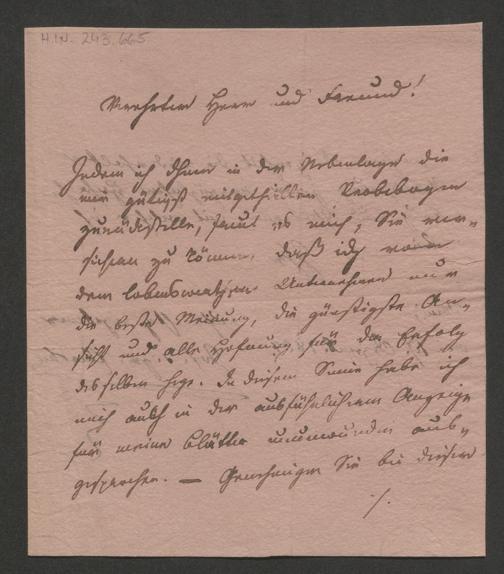 H.I.N. 243.665
Verehrter Herr und Freund!
Indem ich Ihnen in der Nebenlage die
mir gütigst mitgetheilten Probebogen
zurückstelle, freut es mich, Sie ver-
sichern zu können, daß ich von
dem lobenswerthen Unternehmen nur
die beste Meinung, die günstigste An-
sicht und alle Hoffnung für den Erfolg
desselben hege. In diesem Sinne habe ich
mich auch in der ausführlichern Anzeige
für meine Blätter unumwunden aus-
gesprochen. — Genehmigen Sie bei dieser
./.